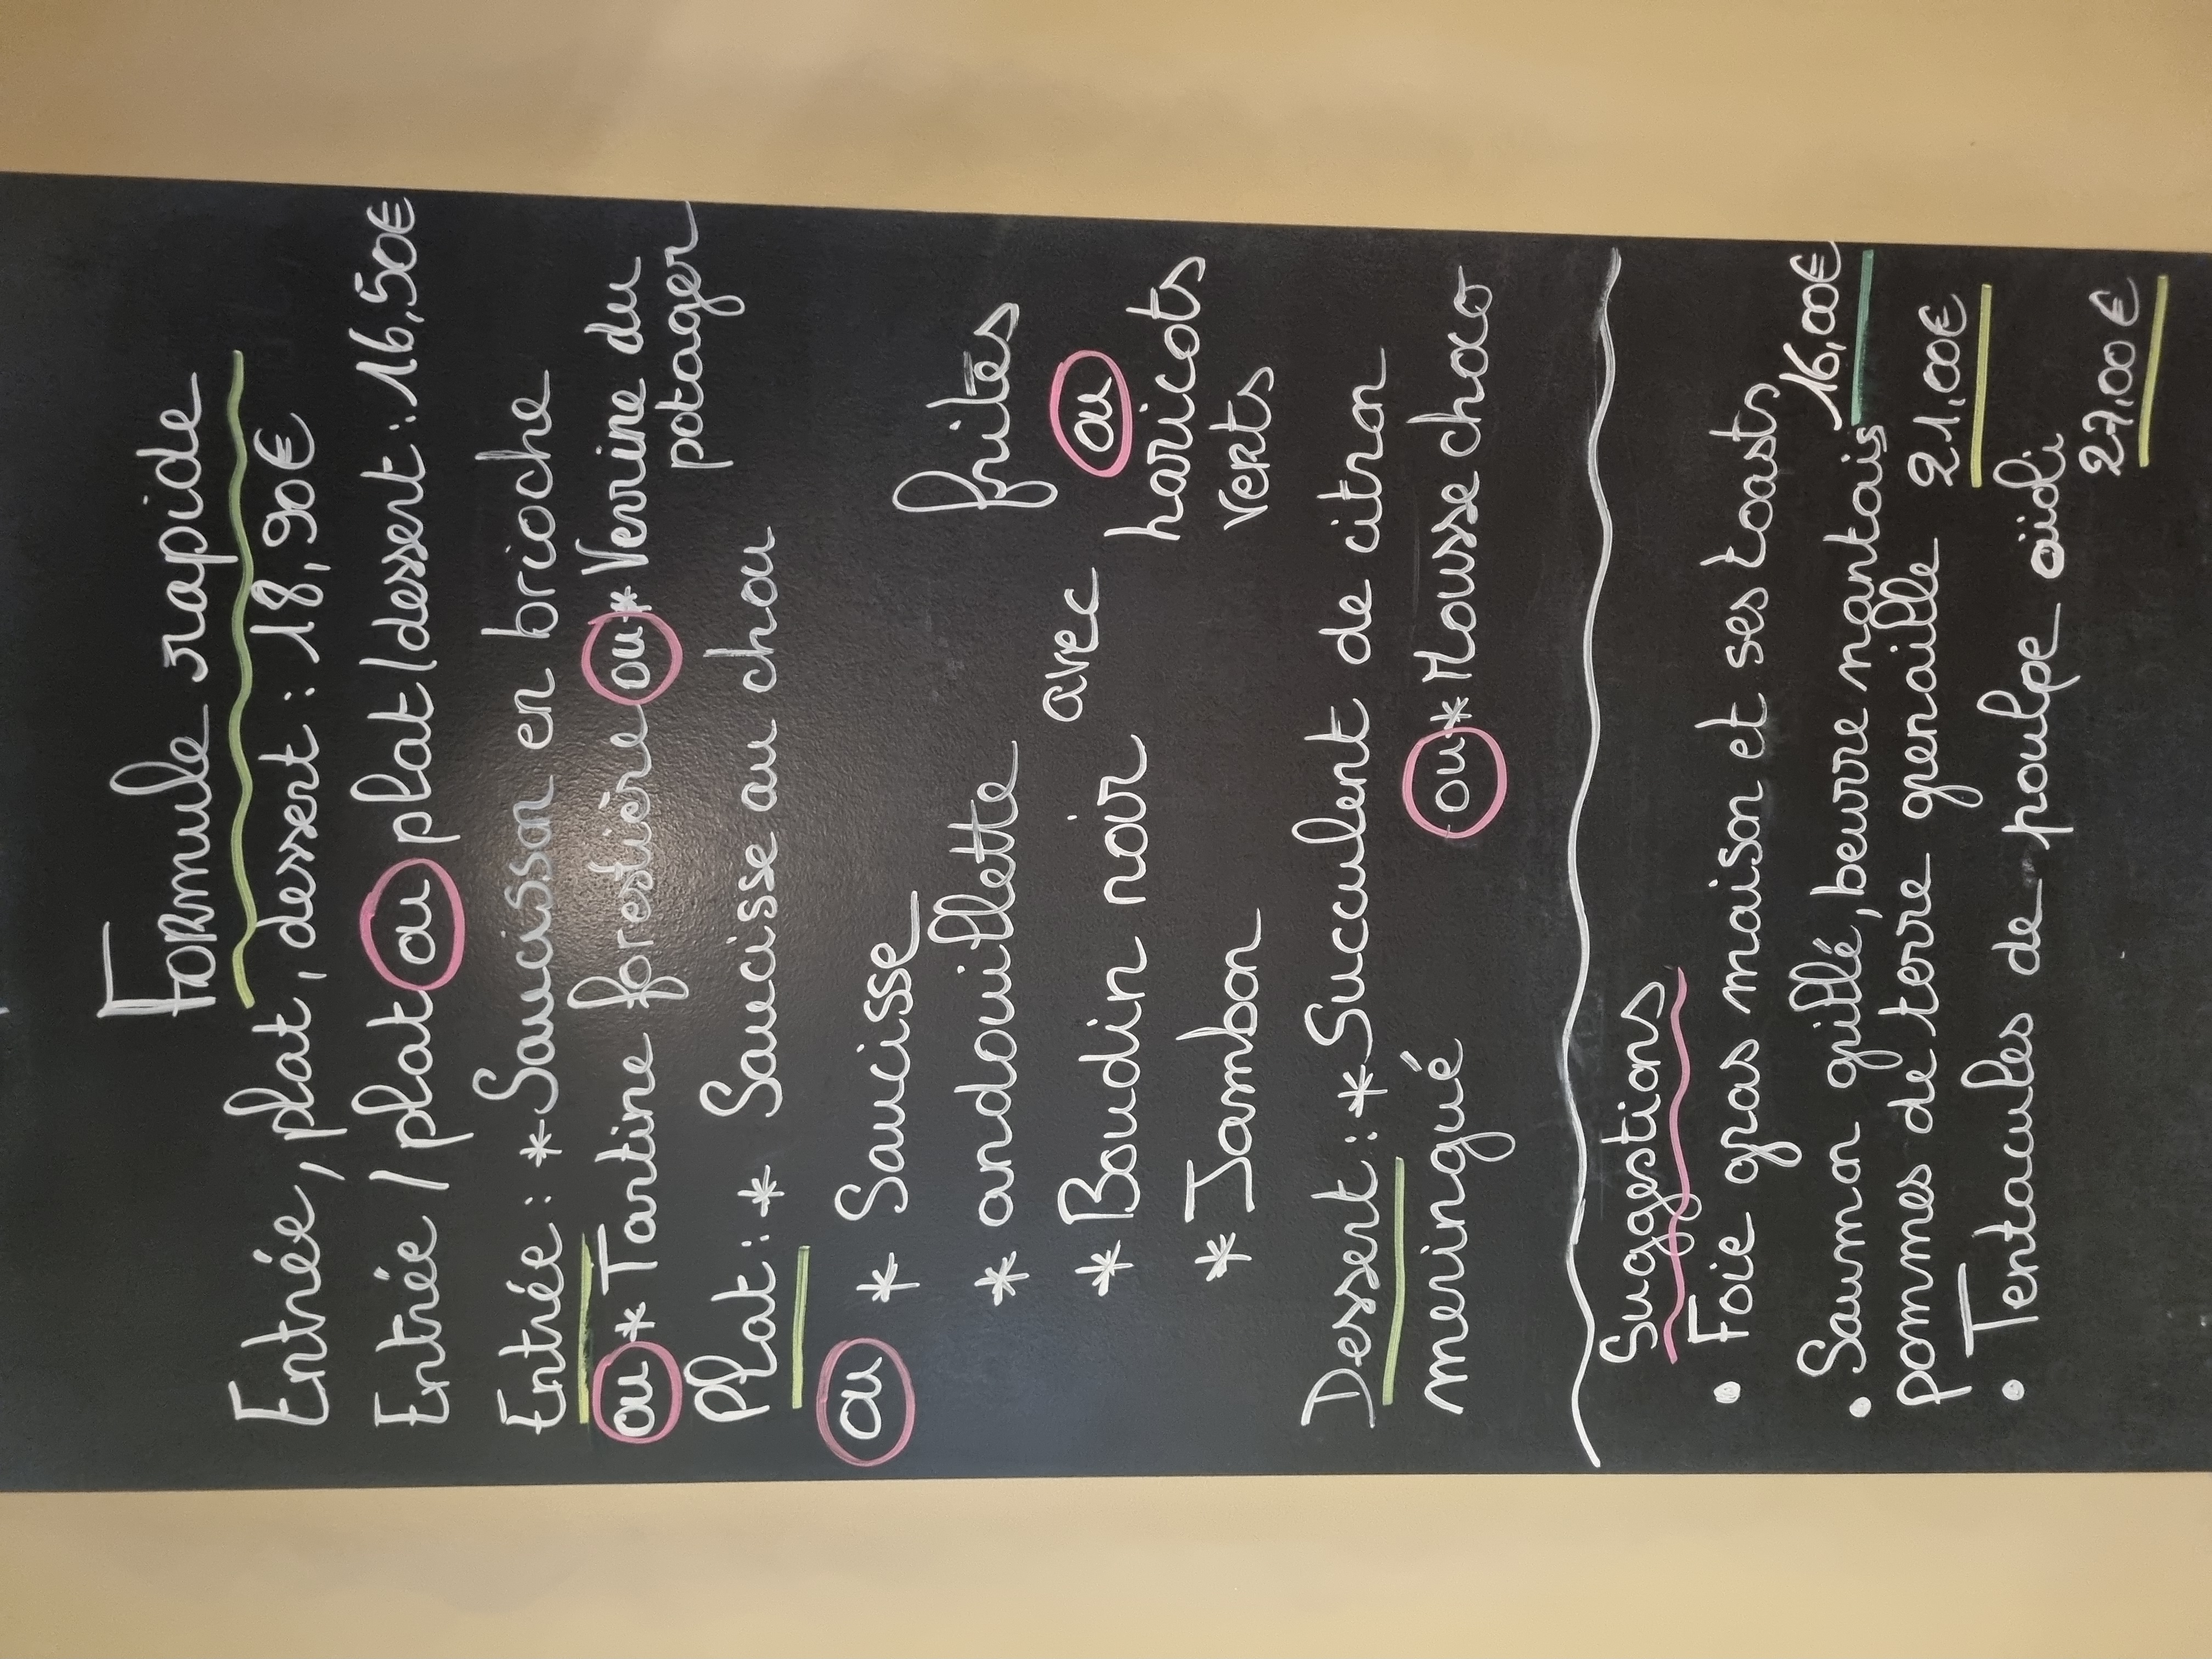 Formule rapide
Entrée, plat, dessert : 18,90€
Entrée / plat ou plat / dessert : 16,50€
Entrée : * Saucisson en brioche
ou * Tartine forestière ou * Verrine du
potager
Plat : * Saucisse au chou
ou * Saucisse
* andouillette
* Boudin noir
* Jambon
avec
frites
ou
haricots
verts
Dessert : * Succulent de citron
meringué ou * Mousse choco
Suggestions
• Foie gras maison et ses toasts
16,00€
• Saumon grillé, beurre nantais
pommes de terre grenaille 21,00€
• Tentacules de poulpe aïoli
27,00€